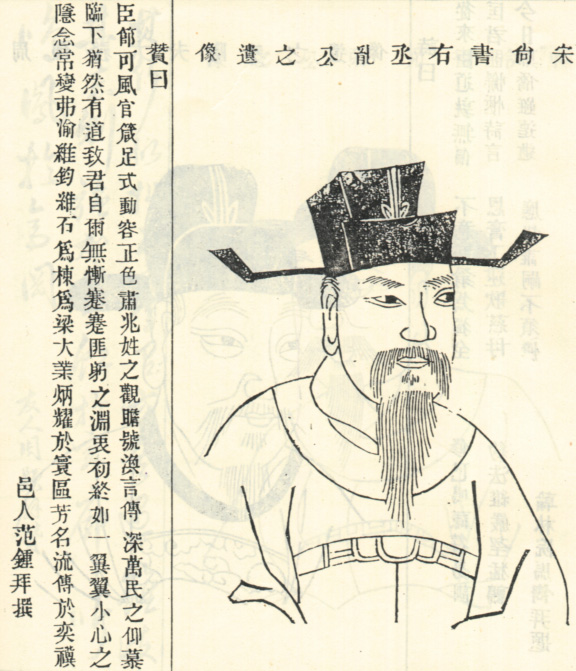 宋尙書右丞亂公之遺像
贊曰
臣節可風官箴足式動容正色肅兆姓之觀瞻號渙言傳深萬民之仰慕
臨下猶然有道致君自爾無慚蹇蹇匪躬之淵衷初終如一翼翼小心之
隱念常變弗渝維鈞維石爲棟爲梁大業炳耀於寰區芳名流傳於奕禩
邑人范鍾拜撰